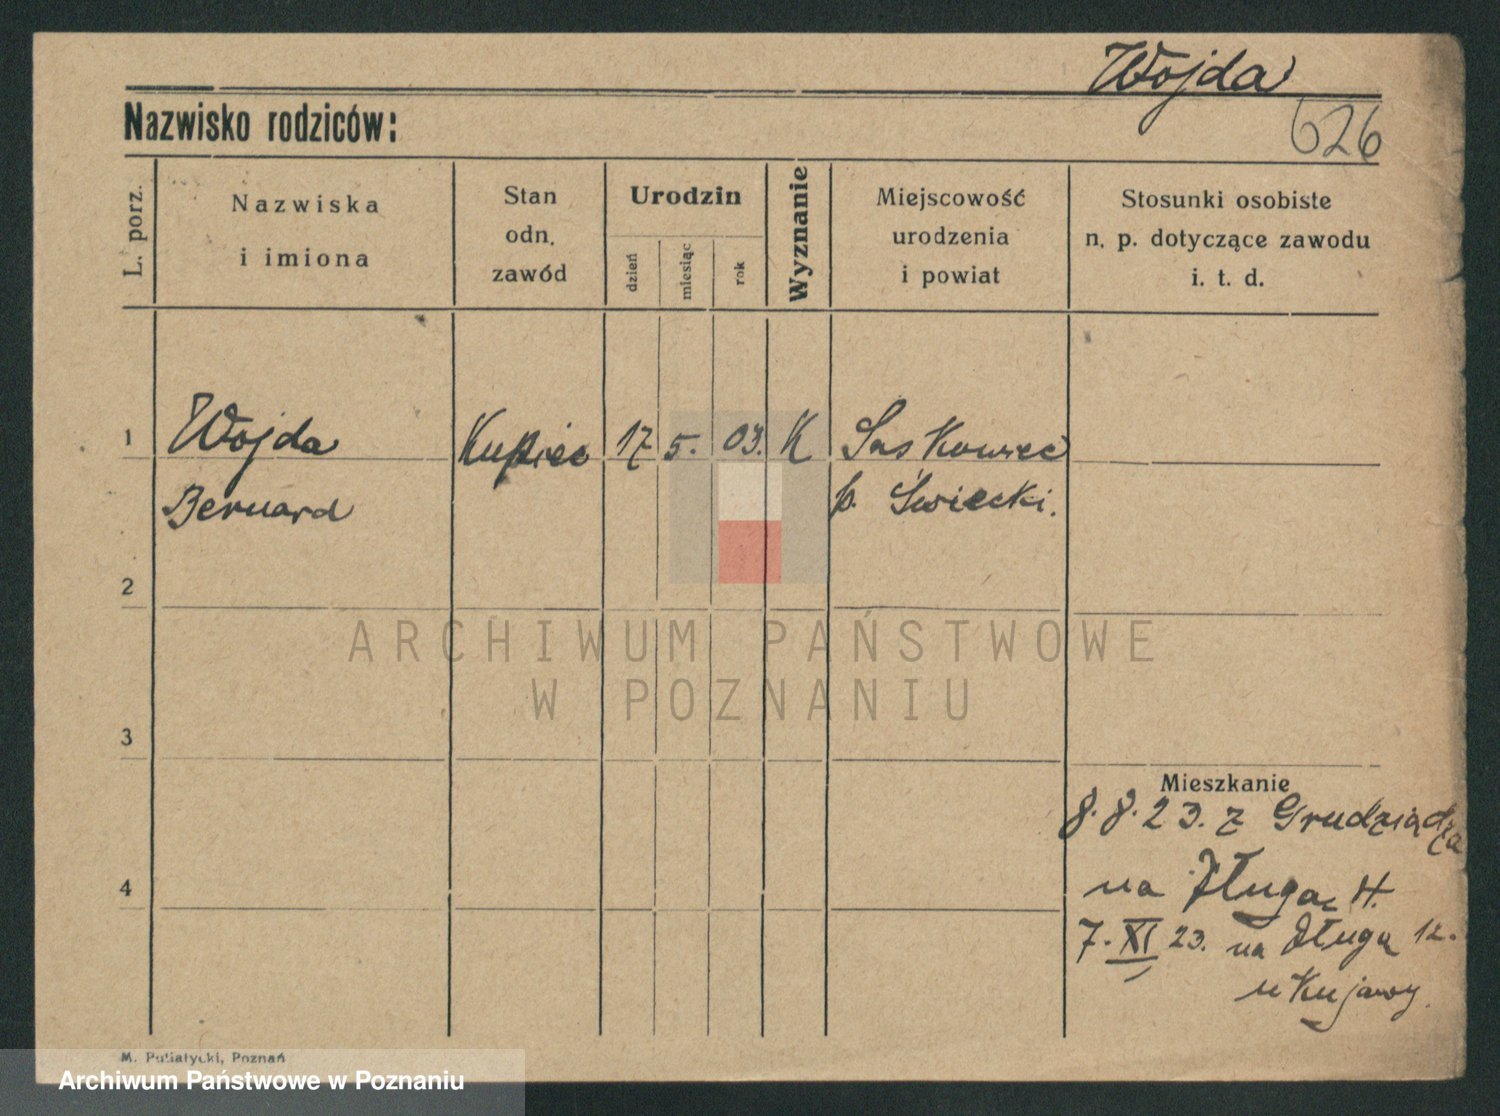 Wojda
Nazwisko rodziców:
626
L. porz.
Nazwiska
i imiona
Stan
odn.
zawód
Urodzin
dzień
miesiąc
rok
Wyznanie
Miejscowość
urodzenia
i powiat
Stosunki osobiste
n. p. dotyczące zawodu
i. t. d.
1
Wojda
Kupiec
17
5.
03.
K
Laskowiec
Bernard
p. Świecki.
2
ARCHIWUM PAŃSTWOWE
W POZNANIU
3
Mieszkanie
8.8.23. z Grudziądza
4
na Długą
7. XI 23. na Długą 12.
u Kujawy.
M. Putiatycki, Poznań
Archiwum Państwowe w Poznaniu